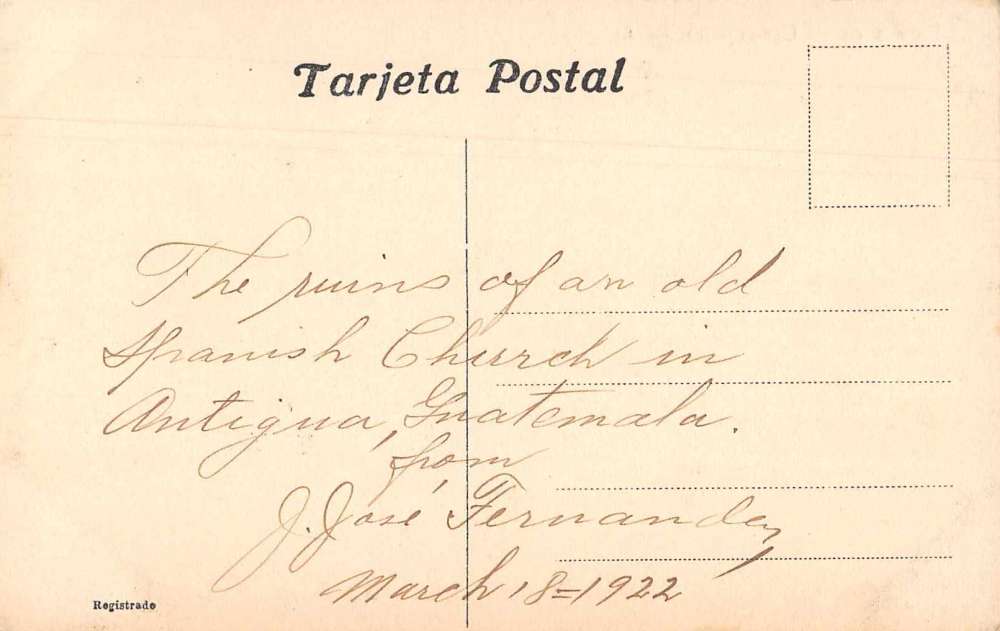 Tarjeta Postal
The ruins of an old
Spanish Church in
Antigua, Guatemala.
from
J. José Fernandez
March 18=1922
Registrado